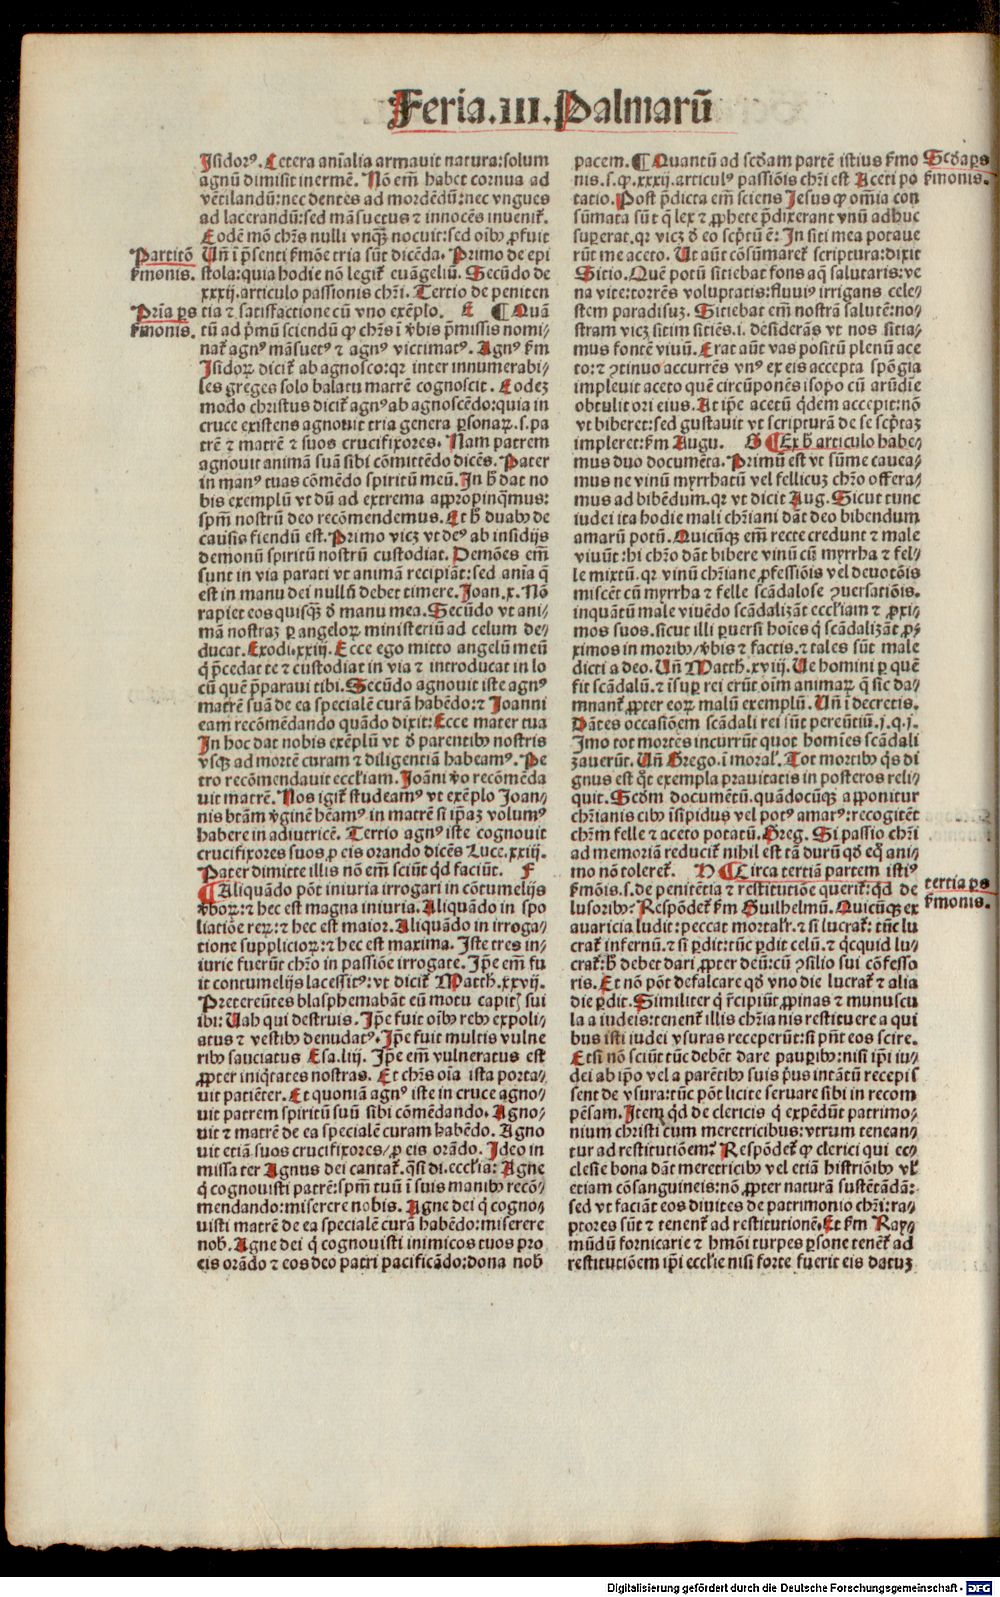 Feria.III.Palmarū
Isidorꝰ. Cetera aīalia armauit natura: solum
agnū dimisit inermē. Nō em̄ habet cornua ad
vētilandū: nec dentes ad mordēdū: nec vngues
ad lacerandū: sed māsuetus ⁊ innocēs inuenit̄.
Eodē mō chr̄s nulli vnqꝫ nocuit: sed oībꝰ ꝓfuit
Partitō
ẜmonis.
Vn̄ ī p̄senti ẜmōe tria sūt dicēda. Primo de epi
stola: quia hodie nō legit̄ euāgeliū. Secūdo de
xxxij. articulo passionis chr̄i. Tertio de peniten
Prīa ps
ẜmonis.
tia ⁊ satisfactione cū vno exēplo. E ¶ Quā
tū ad p̄mū sciendū ꝙ chr̄s ī v̄bis p̄missis nomi-
nat̄ agnꝰ māsuetꝰ ⁊ agnꝰ victimatꝰ. Agnꝰ ẜm
Isidoꝝ dicit̄ ab agnosco: qꝛ inter innumerabi-
les greges solo balatu matrē cognoscit. Eodeꝫ
modo christus dicit̄ agnꝰ ab agnoscēdo: quia in
cruce existens agnouit tria genera ꝑsonaꝝ. s. pa
trē ⁊ matrē ⁊ suos crucifixores. Nam patrem
agnouit animā suā sibi cōmittēdo dicēs. Pater
in manꝰ tuas cōmēdo spiritū meū. In h̄ dat no
bis exemplū vt dū ad extrema appropinq̄mus:
spm̄ nostrū deo recōmendemus. Et h̄ duabꝰ de
causis fiendū est. Primo vicꝫ vt deꝰ ab insidijs
demonū spiritū nostrū custodiat. Demōes em̄
sunt in via parati vt animā recipiāt: sed anīa q̄
est in manu dei nullū debet timere. Joan. x. Nō
rapiet eos quisqꝫ ð manu mea. Secūdo vt ani-
mā nostraꝫ ꝑ angeloꝝ ministeriū ad celum de-
ducat. Exodi. xxiij. Ecce ego mitto angelū meū
q̄ p̄cedat te ⁊ custodiat in via ⁊ introducat in lo
cū quē p̄paraui tibi. Secūdo agnouit iste agnꝰ
matrē suā de ea specialē curā habēdo: ⁊ Joanni
eam recōmēdando quādo dixit: Ecce mater tua
In hoc dat nobis exēplū vt ð parentibꝰ nostris
vsqꝫ ad mortē curam ⁊ diligentiā habeamꝰ. Pe
tro recōmendauit eccl̄iam. Joāni v̄o recōmēda
uit matrē. Nos igit̄ studeamꝰ vt exēplo Joan-
nis btām v̄ginē hēamꝰ in matrē si ip̄aꝫ volumꝰ
habere in adiutricē. Tertio agnꝰ iste cognouit
crucifixores suos ꝓ eis orando dicēs Luce. xxiij.
Pater dimitte illis nō em̄ sciūt qd̄ faciūt. F
¶ Aliquādo pōt iniuria irrogari in cōtumelijs
v̄boꝝ: ⁊ hec est magna iniuria. Aliquādo in spo
liatiōe reꝝ: ⁊ hec est maior. Aliquādo in irroga-
tione supplicioꝝ: ⁊ hec est maxima. Iste tres in-
iurie fuerūt chr̄o in passiōe irrogate. Ip̄e em̄ fu
it contumelijs lacessitꝰ: vt dicit̄ Matth. xxvij.
Pretereūtes blasphemabāt eū motu capitꝭ sui
ibi: Vah qui destruis. Ip̄e fuit oībꝰ rebꝰ expoli-
atus ⁊ vestibꝰ denudatꝰ. Ip̄e fuit multis vulne
ribꝰ sauciatus Esa. liij. Ip̄e em̄ vulneratus est
ꝓpter iniq̄tates nostras. Et chr̄s oīa ista porta-
uit patiēter. Et quoniā agnꝰ iste in cruce agno-
uit patrem spiritū suū sibi cōmēdando. Agno-
uit ⁊ matrē de ea specialē curam habēdo. Agno
uit etiā suos crucifixores/ ꝓ eis orādo. Ideo in
missa ter Agnus dei cantat̄. q̄si di. eccl̄ia: Agne
q̄ cognouisti patrē: spm̄ tuū ī suis manibꝰ recō-
mendando: miserere nobis. Agne dei q̄ cogno-
uisti matrē de ea specialē curā habēdo: miserere
nob. Agne dei q̄ cognouisti inimicos tuos pro
eis orādo ⁊ eos deo patri pacificādo: dona nob
pacem. ¶ Quantū ad scd̄am partē istius ẜmo
Scd̄a ps
ẜmonis.
nis. s. ꝙ. xxxij. articulꝰ passiōis chr̄i est Aceti po
tatio. Post p̄dicta em̄ sciens Jesus ꝙ om̄ia con
sūmata sūt q̄ lex ⁊ ꝓphete p̄dixerant vnū adhuc
superat. qꝛ vicꝫ ð eo scp̄tū ē: In siti mea potaue
rūt me aceto. Ut aūt cōsūmaret̄ scriptura: dixit
Sitio. Quē potū sitiebat fons aq̄ salutaris: ve
na vite: torrēs voluptatis: fluuiꝰ irrigans cele-
stem paradisuꝫ. Sitiebat em̄ nostrā salutē: no-
stram vicꝫ sitim sitiēs. i. desiderās vt nos sitia-
mus fontē viuū. Erat aūt vas positū plenū ace
to: ⁊ ꝯtinuo accurrēs vnꝰ ex eis accepta spōgia
impleuit aceto quē circūponēs isopo cū arūdie
obtulit ori eius. At ip̄e acetū q̄dem accepit: nō
vt biberet: sed gustauit vt scripturā de se scp̄taꝫ
impleret: ẜm Augu. G ¶ Ex h̄ articulo habe-
mus duo documēta. Primū est vt sūme cauea-
mus ne vinū myrrhatū vel fellicuꝫ chr̄o offera-
mus ad bibēdum. qꝛ vt dicit Aug. Sicut tunc
iudei ita hodie mali chr̄iani dāt deo bibendum
amarū potū. Quicūqꝫ em̄ recte credunt ⁊ male
viuūt: hi chr̄o dāt bibere vinū cū myrrha ⁊ fel-
le mixtū. qꝛ vinū chr̄iane ꝓfessiōis vel deuotōis
miscēt cū myrrha ⁊ felle scādalose ꝯuersatiōis.
inquātū male viuēdo scādalizāt eccl̄iam ⁊ ꝓxi-
mos suos. sicut illi ꝑuersi hoīes q̄ scādalizāt ꝓ-
ximos in moribꝰ/ v̄bis ⁊ factis. ⁊ tales sūt male
dicti a deo. Vn̄ Matth. xviij. Ve homini ꝑ quē
fit scādalū. ⁊ īsuꝑ rei erūt oīm animaꝝ q̄ sic da-
mnant̄ ꝓpter eoꝝ malū exemplū. Vn̄ ī decretis.
Dātes occasiōem scādali rei sūt pereūtiū. j. q. j.
Imo tot mortes incurrūt quot homīes scādali
zauerūt. Vn̄ Grego. ī moral̄. Tot mortibꝰ q̄s di
gnus est qt̄ exempla prauitatis in posteros reli-
quit. Scd̄m documētū. quādocūqꝫ apponitur
chr̄ianis cibꝰ īsipidus vel potꝰ amarꝰ: recogitēt
chr̄m felle ⁊ aceto potatū. Greg. Si passio chr̄i
ad memoriā reducit̄ nihil est tā durū qd̄ eq̄ ani-
mo nō toleret̄. H ¶ Circa tertiā partem istiꝰ
tertia ps
ẜmonis.
ẜmōis. s. de penitētia ⁊ restitutiōe querit̄: qd̄ de
lusoribꝰ: Respōdet̄ ẜm Guilhelmū. Quicūqꝫ ex
auaricia ludit: peccat mortalr̄. ⁊ si lucrat̄: tūc lu
crat̄ infernū. ⁊ si ꝑdit: tūc ꝑdit celū. ⁊ q̄cquid lu-
crat̄: h̄ debet dari ꝓpter deū: cū ꝯsilio sui cōfesso
ris. Et nō pōt defalcare qd̄ vno die lucrat̄ ⁊ alia
die ꝑdit. Similiter q̄ r̄cipiūt ꝓpinas ⁊ munuscu
la a iudeis: tenent̄ illis chr̄ianis restituere a qui
bus isti iudei vsuras receperūt: si pn̄t eos scire.
Et si nō sciūt tūc debēt dare pauꝑibꝰ: nisi ip̄i iu-
dei ab ip̄o vel a parētibꝰ suis p̄us intātū recepis
sent de vsura: tūc pōt licite seruare sibi in recom
pēsam. Itē qd̄ de clericis q̄ expēdūt patrimo-
nium christi cum meretricibus: vtrum tenean-
tur ad restitutiōem? Respōdet̄ ꝙ clerici qui ec-
clesie bona dant meretricibꝰ vel etiā histriōibꝰ vl̄
etiam cōsanguineis: nō ꝓpter naturā sustētādā:
sed vt faciāt eos diuites de patrimonio chr̄i: ra-
ptores sūt ⁊ tenent̄ ad restitutionē. Et ẜm Ray-
mūdū fornicarie ⁊ hmōi turpes ꝑsone tenēt̄ ad
restitutiōem ip̄i eccl̄ie nisi forte fuerit eis datuꝫ
Digitalisierung gefördert durch die Deutsche Forschungsgemeinschaft - DFG